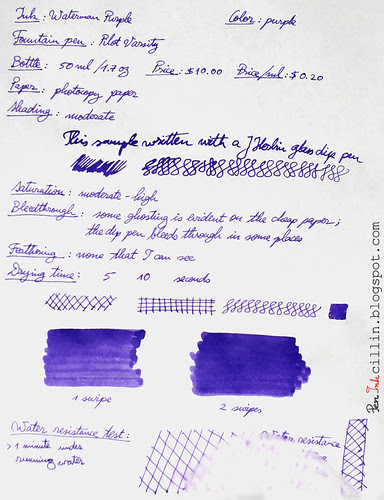 Ink: Waterman Purple Color: purple
Fountain pen: Pilot Varsity
Bottle: 50ml/1.7oz Price: $10.00 Price/ml: $0.20
Paper: photocopy paper
Shading: moderate
This sample written with a J Herbin glass dip pen
Saturation: moderate-high
Bleedthrough: some ghosting is evident on the cheap paper;
the dip pen bleeds through in some places
Feathering: none that I can see
Drying time: 5 10 seconds
1 swipe
2 swipes
Water resistance test:
>1 minute under
running water
Water resistance
time
Pen Ink cillin.blogspot.com